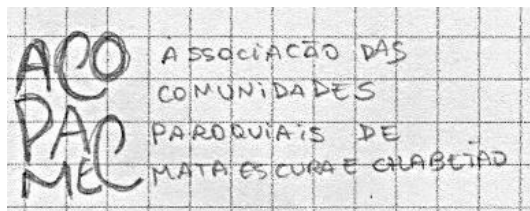 ACO
PAC
MEC
ASSOCIAÇÃO DAS
COMUNIDADES
PAROQUIAIS DE
MATA ESCURA E CALABETÃO